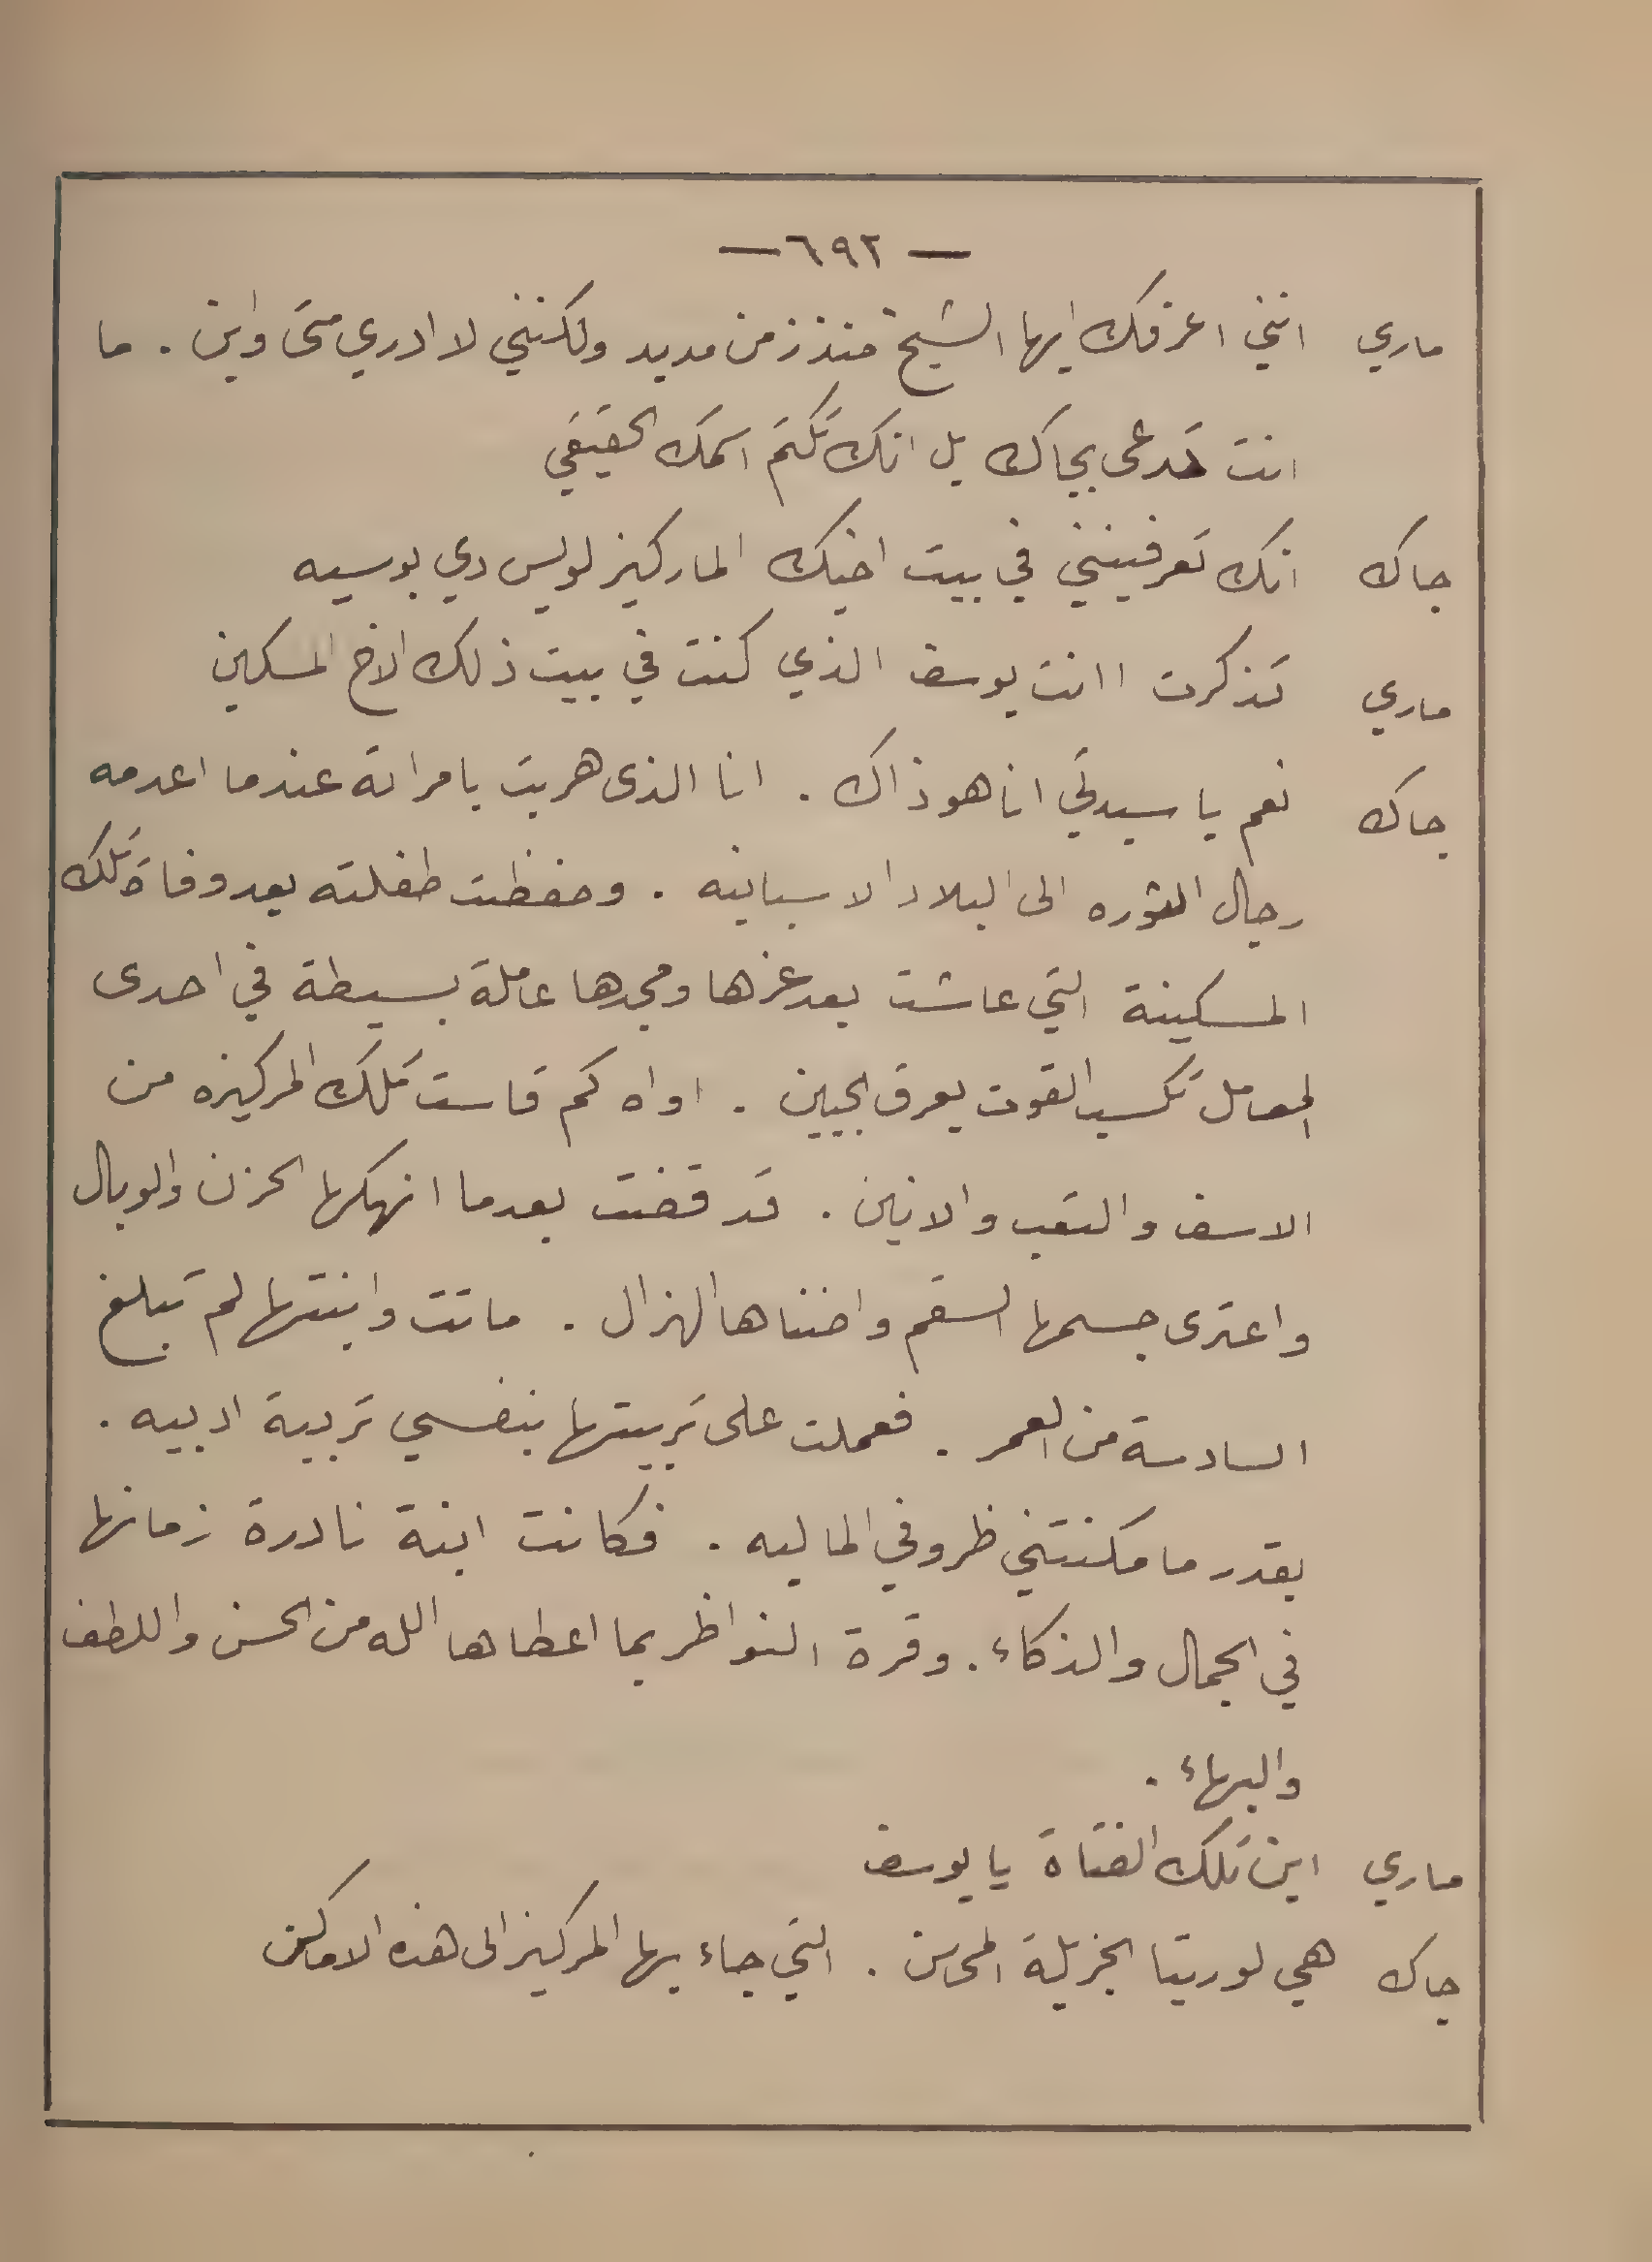 — ٦٩٢ —
ماري انني اعرفك ايها الشيخ منذ زمن مديد ولكنني لا ادري متى واين . ما
انت تدعى بجاك بل انك تكتم اسمك الحقيقي
جاك انك تعرفينني في بيت اخيك الماركيز لويس دي بوسيه
ماري تذكرت اانت يوسف الذي كنت في بيت ذلك الاخ المسكين
جاك نعم يا سيدتي انا هو ذاك . انا الذى هربت بامراته عندما اعدمه
رجال الثوره الى البلاد الاسبانيه . وحفظت طفلته بعد وفاة تلك
المسكينة التي عاشت بعد عزها ومجدها عاملة بسيطة في احدى
المعامل تكسب القوت بعرق الجبين . اواه كم قاست تلك المركيزه من
الاسف والتعب والانين . قد قضت بعدما انهكها الحزن والوبال
واعترى جسمها السقم واضناها الهزال . ماتت وابنتها لم تبلغ
السادسة من العمر . فعملت على تربيتها بنفسي تربية ادبيه .
بقدر ما مكنتني ظروفي الماليه . فكانت ابنة نادرة زمانها
في الجمال والذكاء . وقرة النواظر بما اعطاها الله من الحسن واللطف
والبهاء .
ماري اين تلك الفتاة يا يوسف
جاك هي لوريتا الجزيلة المحاسن . التي جاء بها المركيز الى هذه الاماكن